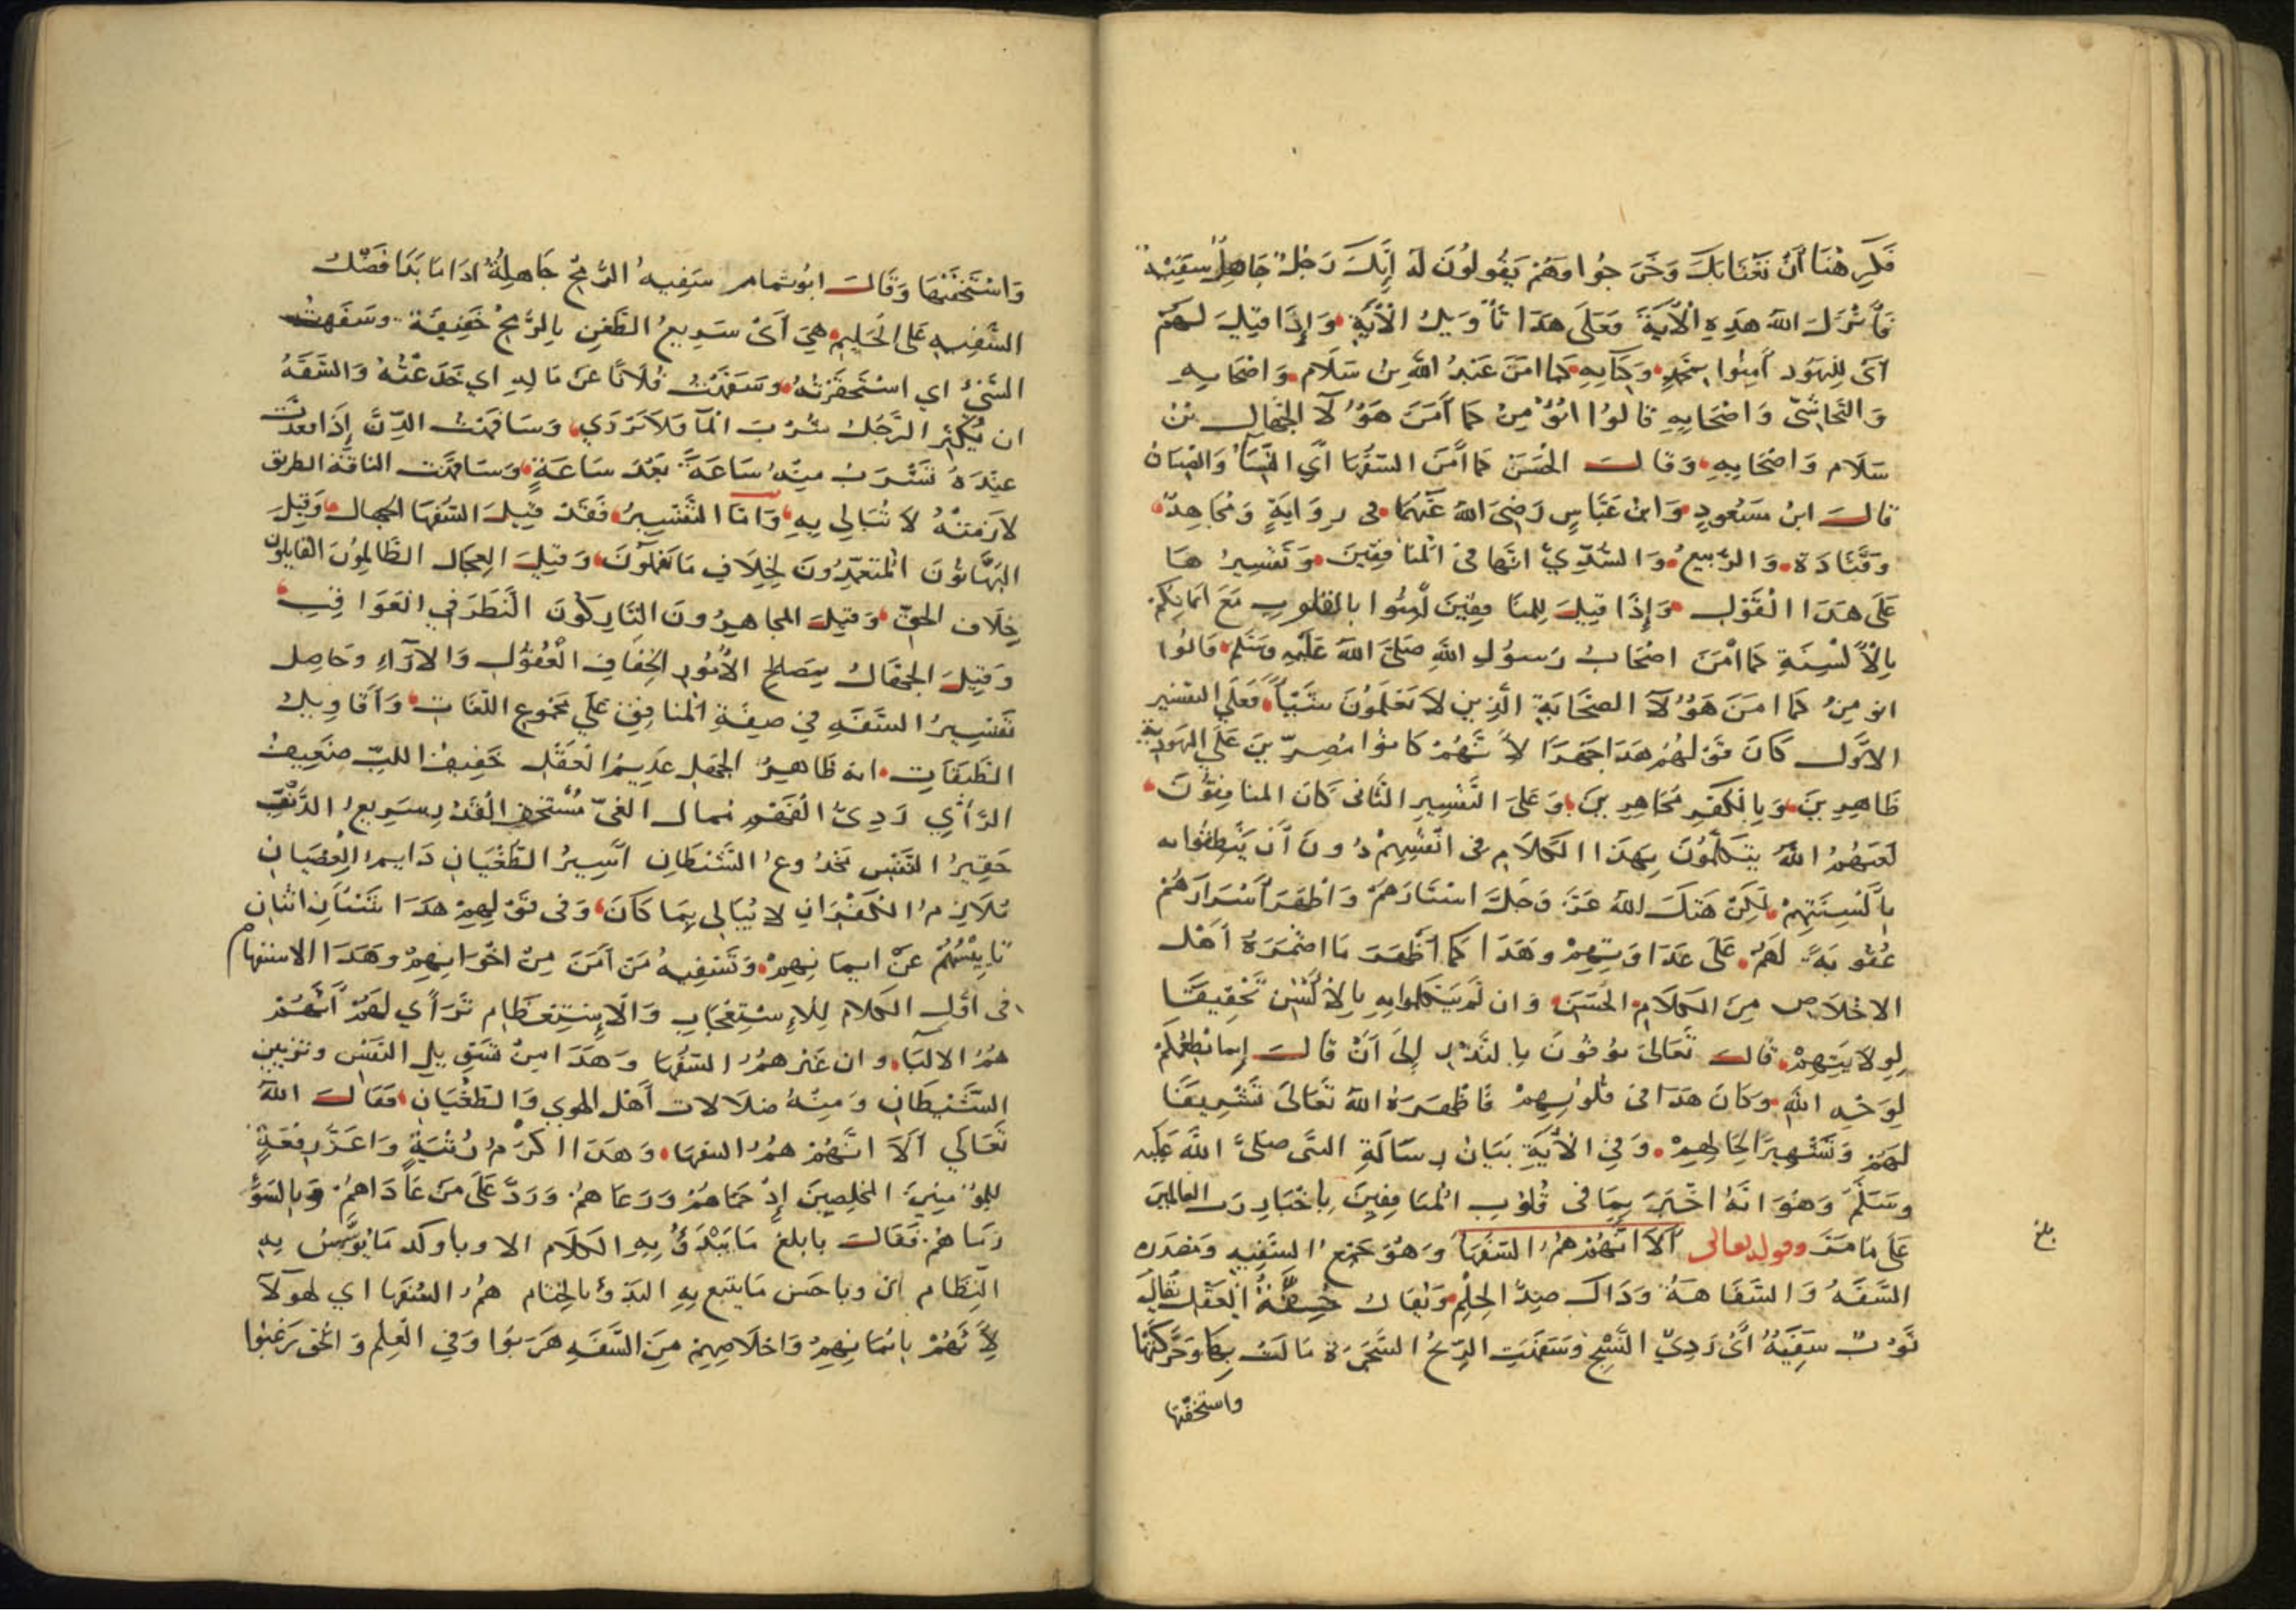 فَكَرِهْنَا أَنْ نَغْتَابَكَ وَخَرَجُوا وَهُمْ يَقُولُونَ لَهُ إِنَّكَ رَجُلٌ جَاهِلٌ سَفِيهٌ
فَأَنْزَلَ اللَّهُ هَذِهِ الْآيَةَ فَعَلَى هَذَا تَأْوِيلُ الْآيَةِ وَإِذَا قِيلَ لَهُمْ
أَيْ لِلْيَهُودِ آمِنُوا بِمُحَمَّدٍ وَكِتَابِهِ كَمَا امَنَ عَبْدُ اللَّهِ بْنُ سَلَام وَاصْحَابِهِ
وَالنَّجَاشِيّ وَاصْحَابِهِ قَالُوا انُؤْمِنُ كَمَا آمَنَ هَؤُلَآ الْجُهَّال بْنُ
سَلَام وَاصْحَابِهِ وَقَالَ الْحَسَن كَمَا آمَنَ السُّفَهَا أَيِ النِّسَا وَالصِّبْيَانُ
قَالَ ابْنُ مَسْعُودٍ وَابْنُ عَبَّاسٍ رَضِيَ اللَّهُ عَنْهُمَا في رِوَايَةٍ وَمُجَاهِدٌ
وَقَتَادَة وَالرَّبِيعُ وَالسُّدِّيّ انَّهَا فِي الْمُنَافِقِينَ وَتَفْسِيرُهَا
عَلَى هَذَا الْقَوْلِ وَإِذَا قِيلَ لِلمُنَافِقِينَ آمِنُوا بالقلوب مَعَ ايمَانِكُمْ
بِالْأَلْسِنَةِ كَمَا آمَنَ اصْحَابُ رَسُولِ اللَّهِ صَلَّى اللَّهُ عَلَيْهِ وَسَلَّم قَالُوا
انومِنُ كَمَا امَنَ هَؤُلَآ الصَّحَابَةِ الَّذِينَ لَا يَعْلَمُونَ شَيْئًا فَعَلَى التفسير
الاوَّل كَانَ قَوْلُهُمْ هَذَا جَهْرًا لِأَنَّهُمْ كَانُوا مُصِرِّينَ عَلَى الْيَهُودِيَّة
ظَاهِرِينَ وَبِالْكُفْرِ مُجَاهِرِينَ وَعَلَى التَّفْسِيرِ الثَّانِي كَانَ المنافِقُونَ
لَعَنَهُمُ اللَّهُ يَتَكَلَّمُونَ بِهَذَا الْكَلَامِ في انْفُسِهِمْ دُونَ أَنْ يَنْطِقُوا به
بِأَلْسِنَتِهِمْ لَكِنْ هَتَكَ اللَّهُ عَزَّ وَجَلَّ اسْتَارَهُمْ وَاظْهَرَ أَسْرَارَهُمْ
عُقُوبَةً لَهُمْ عَلَى عَدَاوَتِهِمْ وَهَذَا كَمَا أَظْهَرَ مَا اضْمَرَهُ أَهْل
الاخْلَاصِ مِنَ الْكَلَامِ الْحَسَن وَان لَمْ يَتَكَلَّمُوا بِهِ بِالْأَلْسُنِ تَحْقِيقًا
لِوِلَايَتِهِمْ قَالَ تَعَالَى يُوفُونَ بِالنَّذْر إِلَى أَنْ قَالَ إنما نُطْعِمُكُمْ
لِوَجْهِ اللَّهِ وَكَانَ هَذَا فِي قُلُوبِهِمْ فَاظْهَرَهُ اللَّهُ تَعَالَى تَشْرِيفًا
لَهُمْ وَتَشْهِيرًا لِحَالِهِمْ وَفِي الْآيَةِ بَيَانُ رِسَالَةِ النَّبِي صَلَّى اللَّهُ عَلَيْهِ
وَسَلَّمَ وَهُوَ انَّهُ اخْبَرَ بِمَا فِي قُلُوبِ الْمُنَافِقِينَ بِاخْبَارِ رَبِّ العالمين
عَلَى مَا مَرَّ وقوله تعالى أَلَا انَّهُمْ هُمُ السُّفَهَا وَهُوَ جَمْعُ السَّفِيهِ وَمَصْدَره
السَّفَهُ وَالسَّفَاهَةُ وَذَاكَ ضِدُّ الْحِلْمِ وَيُقَالُ خِفَّةُ الْعَقْل يُقَالُ
ثَوْبٌ سَفِيهٌ أَيْ رَدِيّ النَّسْجِ وَسَفَهَتِ الرِّيحُ الشَّجَرَةَ مَالَتْ بِهَا وَحَرَّكَتْهَا
واستخفّتها
بلغ
وَاسْتَخَفَّتْهَا وَقَالَ ابُو تمام سَفِيهُ الرُّمْحِ جَاهِلُهُ اذَا مَا بَدَا فَضْلُ
السَّفِيهِ عَلَى الْحَلِيمِ هِيَ أَيْ سَرِيعُ الطَّعْنِ بِالرُّمْحِ خَفِيفَة وَسَفَهْتُ
الشَّيْءَ اي اسْتَحْقَرْتُهُ وَسَفَهْتُ فُلَانًا عَنْ مَالِهِ اي خَدَعْتُهُ وَالسَّفَهُ
ان يُكْثِرَ الرَّجُلُ شُرْبَ الْمَآ فَلَا يَرْوَي وَسَافَهْتُ الدَّنَّ إِذَا قعدْتَ
عِنْدَهُ تَشْرَبُ مِنْهُ سَاعَةً بَعْدَ سَاعَةٍ وَسَافَهَت الناقة الطريق
لَازَمَتْهُ لَا تُبَالِي بِهِ وَامَّا التَّفْسِيرُ فَقَدْ قِيلَ السُّفَهَا الجهال وَقِيلَ
الْبَهَّاتُونَ الْمُتَعَمِّدُونَ لِخِلَافِ مَا يَعْلَمُونَ وَقِيلَ العجال الظَّالِمُونَ القايلون
خِلَافَ الحَقّ وَقِيلَ المجاهِرُونَ التَّارِكُونَ النَّظَرَ فِي الْعَوَاقِبِ
وَقِيلَ الْجُهَّالُ بِمَصَالِحِ الْأُمُورِ الْخِفَافُ الْعُقُولِ وَالْآرَاءِ وَحَاصِل
تَفْسِيرُ السَّفَهِ فِي صِفَةِ الْمُنَافِقِ عَلَى مَجْمُوعِ اللُّغَاتِ وَأَقَاوِيلُ
الطَّبَقَاتِ انه ظَاهِرُ الْجَهْلِ عَدِيمُ الْعَقْلِ خَفِيفُ اللبّ ضَعِيفُ
الرَّأْيِ رَدِيّ الْفَهْمِ مُسْتَخفّ الْقَدْر سَرِيعُ الذَّنْبِ
حَقِيرُ النَّفْسِ مَخْدُوعُ الشَّيْطَانِ أَسِيرُ الطُّغْيَانِ دَايِمُ الْعِصْيَانِ
مُلَازِمُ الْكُفْرَانِ لَا يُبَالِي بِمَا كَانَ وَفِي قَوْلِهِمْ هَذَا شَيْئَانِ اثْنَانِ
عَنْ ايمَانِهِمْ وَتَسْفِيهُ مَنْ آمَنَ مِنْ اخْوَانِهِمْ وَهَذَا الاستفهام
في اوَّلِ الكلام لِلْإِسْتِعْجَابِ وَالْإِسْتِعْظَامِ تَرَآي لَهُمْ أَنَّهُمْ
هُمُ الالبَّا وان غَيْرَهُمُ السُّفَهَا وَهَذَا مِنْ تَسْوِيلِ النَّفْسِ وَتَزْيِينِ
الشَّيْطَانِ وَمِنْهُ ضلَالات أَهْل الهوي وَالطُّغْيَانِ فَقَالَ اللَّهُ
تَعَالَي أَلَا انَّهُمْ هُمُ السفهَا وَهَذَا اكْرَمُ رُتْبَةٍ وَاعَزّ رِفْعَةٍ
لِلْمُؤْمِنِينَ الْمُخْلِصِينَ إِذْ حَمَاهُمْ وَرَعَاهُمْ وَرَدَّ عَلَى مَنْ عَادَاهُمْ وَبِالسُّوءِ
رَمَاهُمْ فَقَالَ بابلغ مَا يُبْدَؤُ بِهِ الكَلَام الا وباوكد مَا يُؤَسَّسُ بِهِ
النِّظَام ان وباحسَن مَا يتبع بِهِ البَدْؤُ بِالخِتَام هُمُ السُّفَهَا اي لهولآ
لِأَنَّهُمْ بِايْمَانِهِمْ وَاخلَاصِهِمْ مِنَ السَّفَهِ هَرَبُوا وَفِي الْعِلْمِ وَالْحَقِّ رَغِبُوا